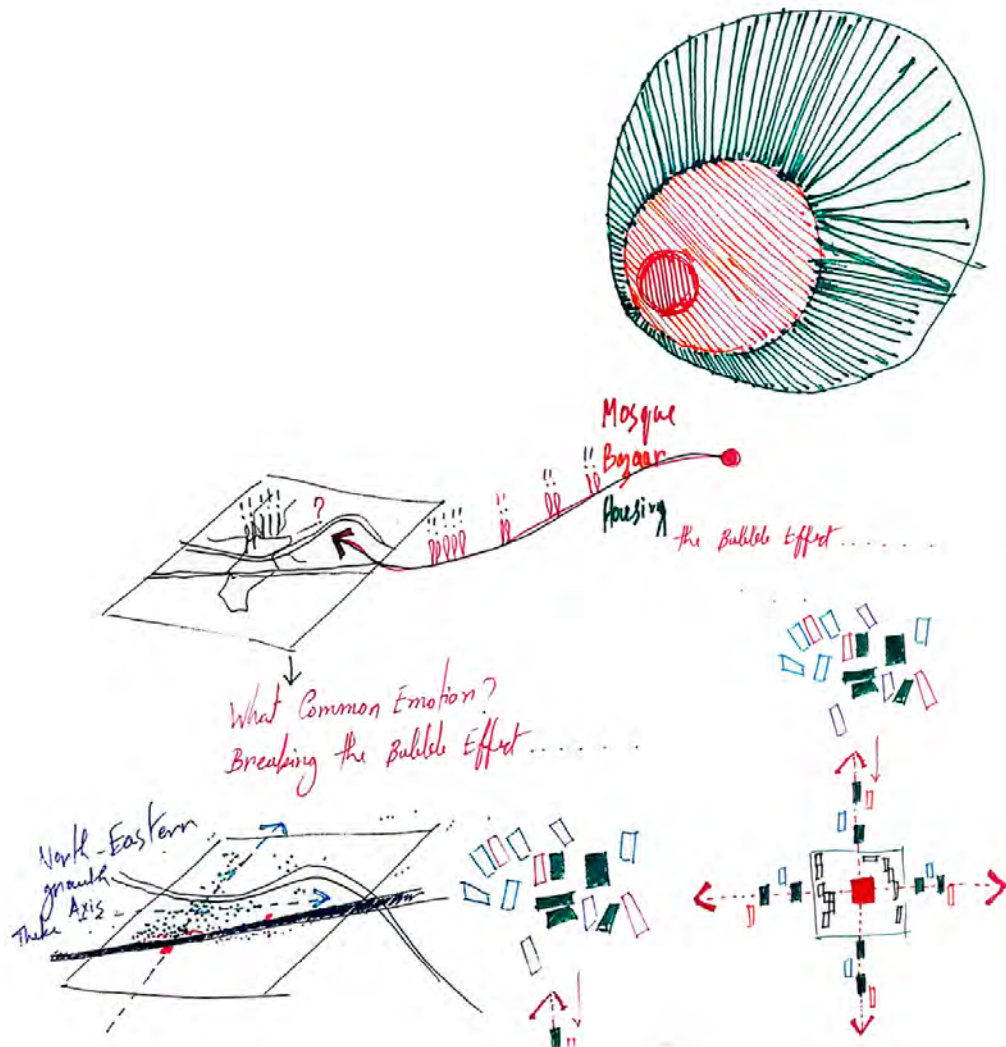 Mosque
Bazaar
Housing
the Bubble Effect.........
?
What Common Emotion?
Breaking the Bubble Effect.......
North-Eastern
growth
Axis